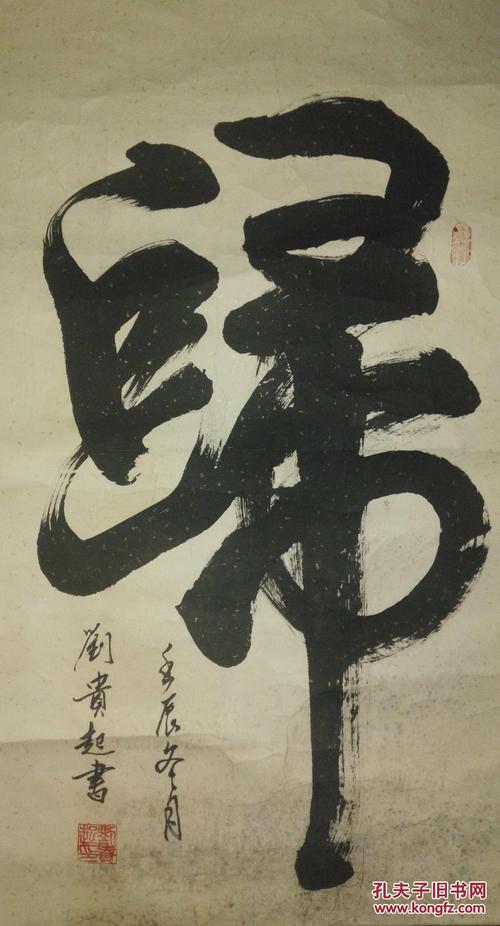 歸
壬辰冬月
劉貴起書
孔夫子旧书网
www.kongfz.com